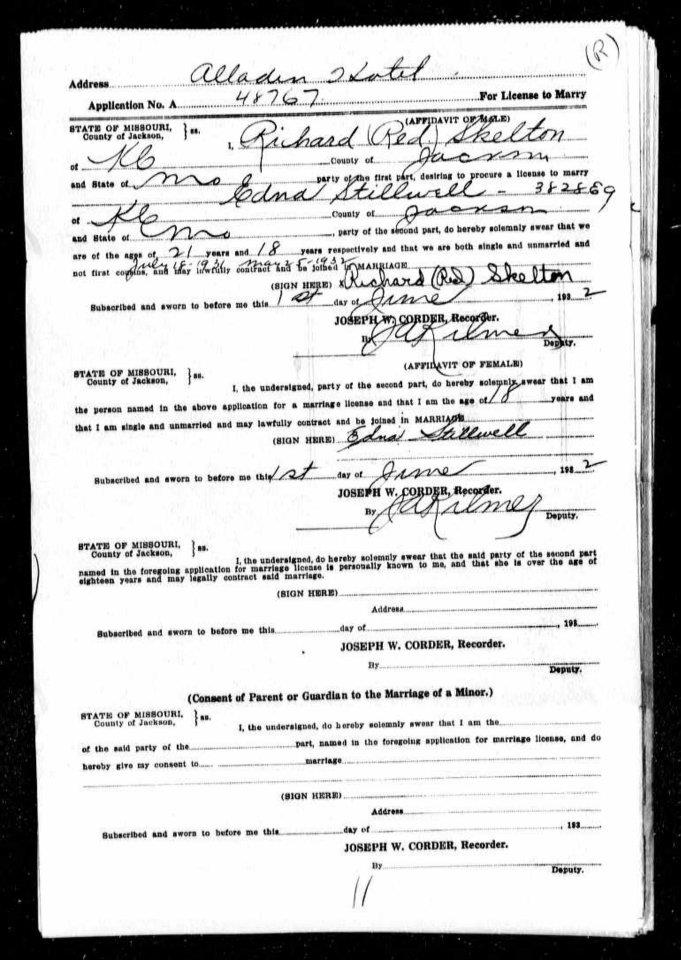 (R)
Address Alladin Hotel
Application No. A 48767 For License to Marry
(AFFIDAVIT OF MALE)
STATE OF MISSOURI, County of Jackson, } ss. I, Richard (Red) Skelton
of KC County of Jackson
and State of Mo party of the first part, desiring to procure a license to marry
Edna Stillwell - 382869
of KC County of Jackson
and State of Mo, party of the second part, do hereby solemnly swear that we
are of the ages of 21 years and 18 years respectively and that we are both single and unmarried and
July 18-1931 May 25-1932
not first cousins, and may lawfully contract and be joined in MARRIAGE
(SIGN HERE) x Richard (Red) Skelton
Subscribed and sworn to before me this 1st day of June, 1932
JOSEPH W. CORDER, Recorder.
By J A Kilmer
Deputy.
(AFFIDAVIT OF FEMALE)
STATE OF MISSOURI, County of Jackson, } ss.
I, the undersigned, party of the second part, do hereby solemnly swear that I am
the person named in the above application for a marriage license and that I am the age of 18 years and
that I am single and unmarried and may lawfully contract and be joined in MARRIAGE
(SIGN HERE) Edna Stillwell
Subscribed and sworn to before me this 1st day of June, 1932
JOSEPH W. CORDER, Recorder.
By J A Kilmer
Deputy.
STATE OF MISSOURI, County of Jackson, } ss.
I, the undersigned, do hereby solemnly swear that the said party of the second part
named in the foregoing application for marriage license is personally known to me, and that she is over the age of
eighteen years and may legally contract said marriage.
(SIGN HERE)
Address
Subscribed and sworn to before me this day of , 193
JOSEPH W. CORDER, Recorder.
By
Deputy.
(Consent of Parent or Guardian to the Marriage of a Minor.)
STATE OF MISSOURI, County of Jackson, } ss.
I, the undersigned, do hereby solemnly swear that I am the
of the said party of the part, named in the foregoing application for marriage license, and do
hereby give my consent to marriage
(SIGN HERE)
Address
Subscribed and sworn to before me this day of , 193
JOSEPH W. CORDER, Recorder.
By
Deputy.
11